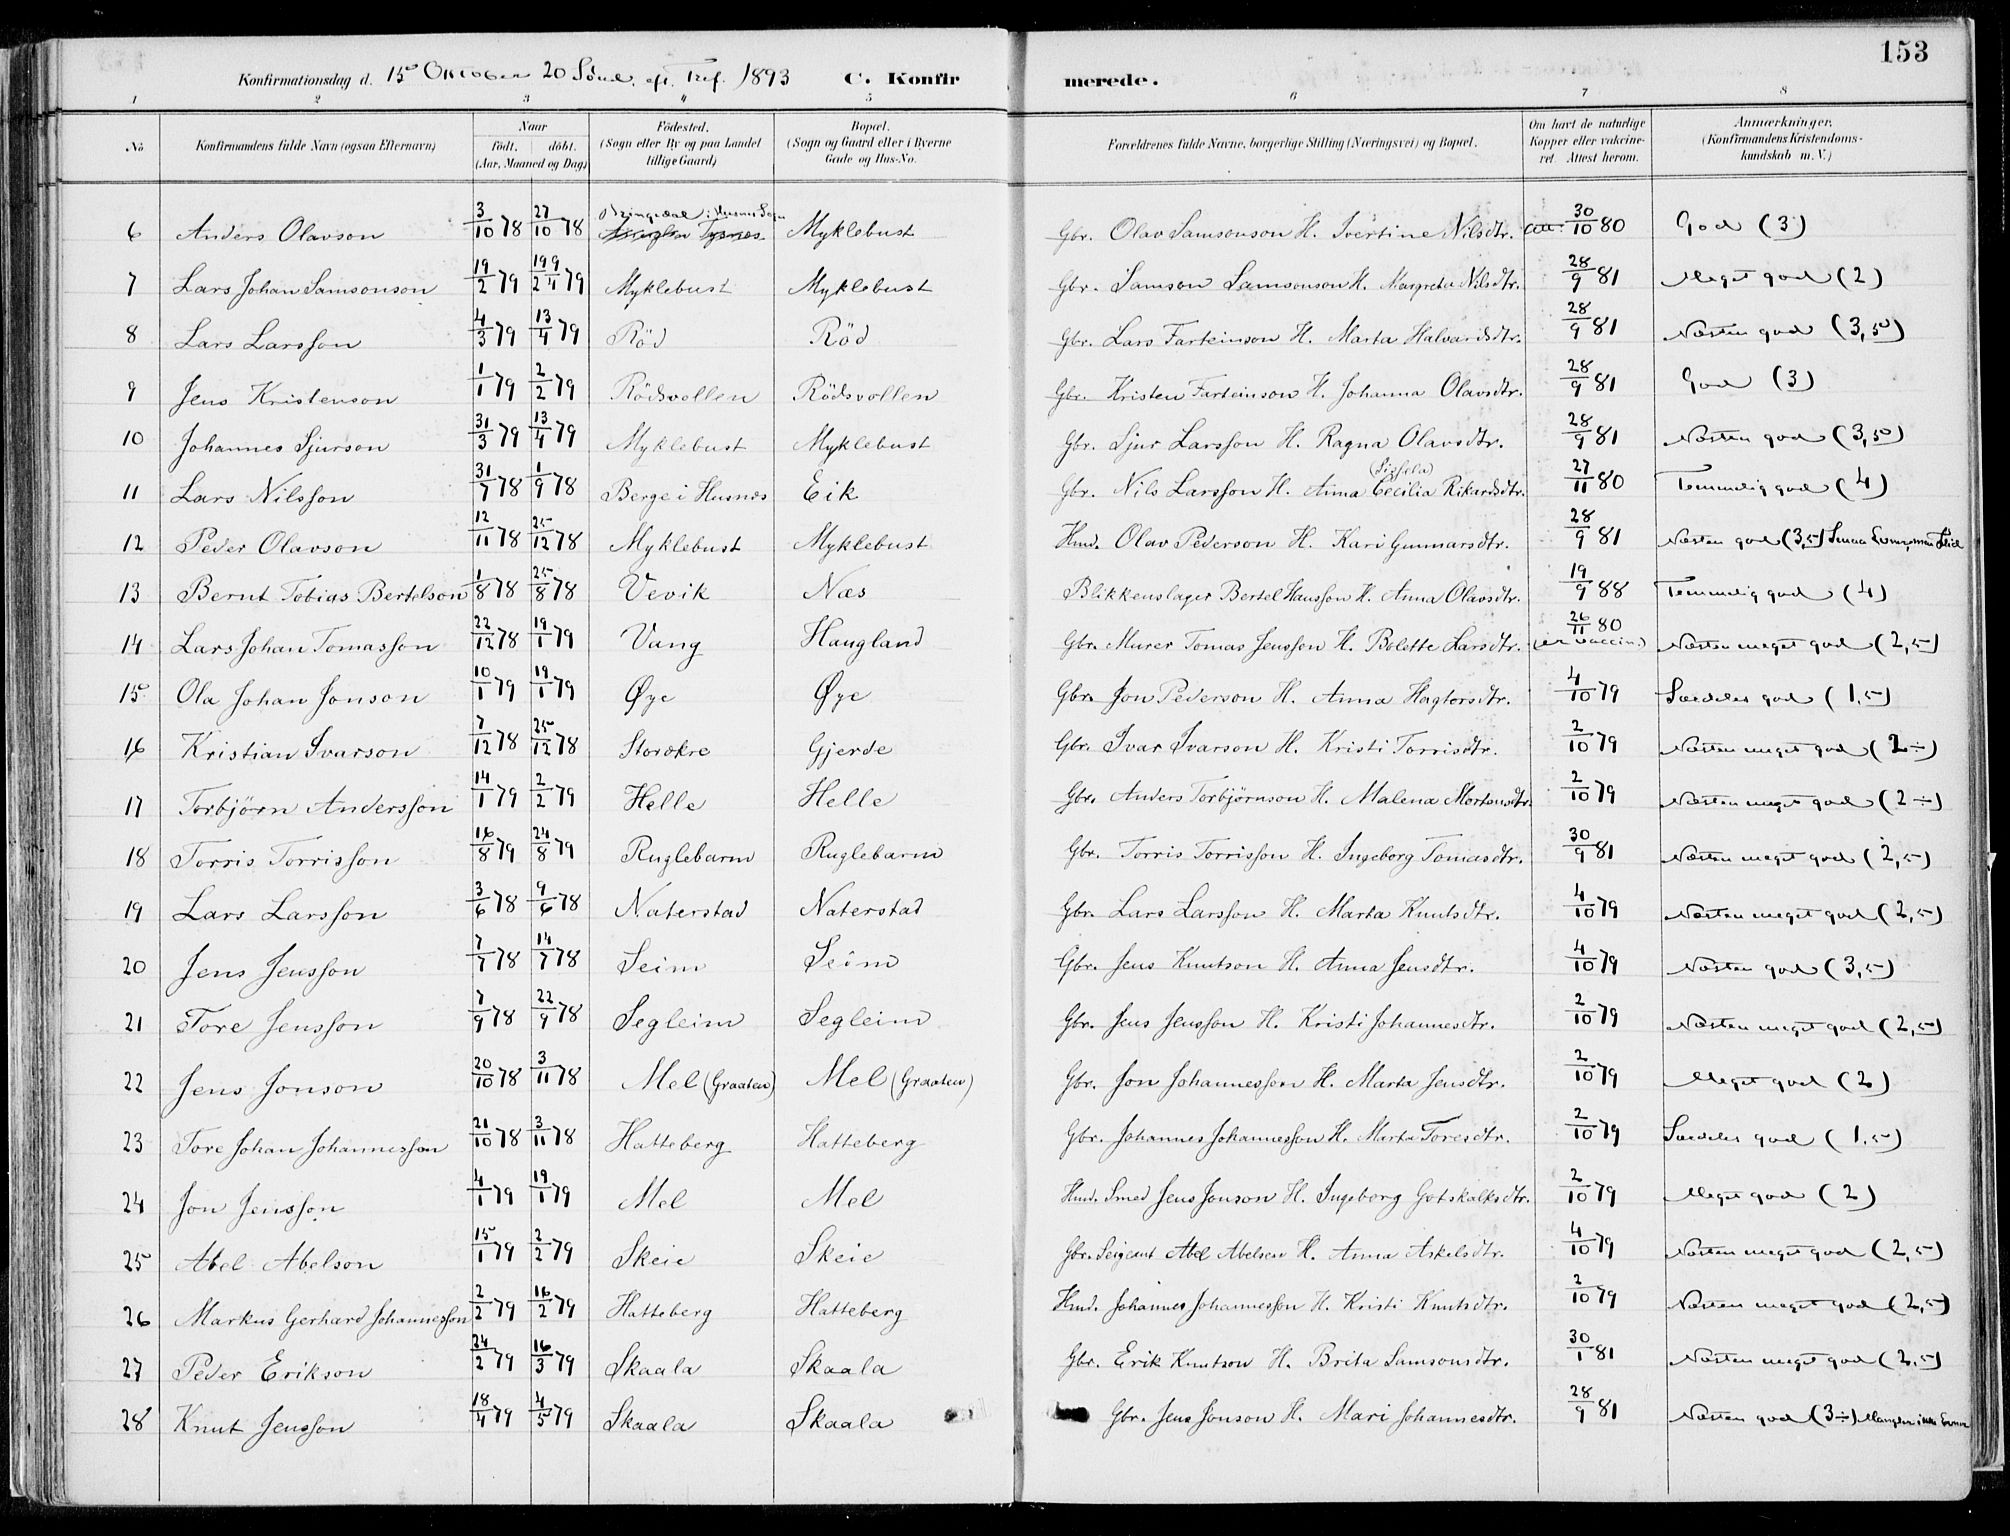 153
Konfirmationsdag d. 15 Oktober 20 Sønd. eft. Tref. 1893 C. Konfirmerede.
1 2 3 4 5 6 7 8
No Konfirmandens fulde Navn (ogsaa Efternavn) Naar født. døbt. (Aar, Maaned og Dag) Fødested. (Sogn eller By og paa Landet tillige Gaard) Bopæl. (Sogn og Gaard eller i Byerne Gade og Hus-No. Forældrenes fulde Navne, borgerlige Stilling (Næringsvei) og Bopæl. Om havt de naturlige Kopper eller vakcineret. Attest herom. Anmærkninger. (Konfirmandens Kristendomskundskab m. V.)
6 Anders Olavson 3/10 78 27/10 78 i Husnes Sogn Myklebust Gbr. Olav Samsonson H. Ivertine Nilsdtr. 30/10 80 God (3)
7 Lars Johan Samsonson 19/2 79 19/2 9/4 79 Myklebust Myklebust Gbr. Samson Samsonson H. Margreta Nilsdtr. 28/9 81 Meget god (2)
8 Lars Larsson 4/3 79 13/4 79 Röd Röd Gbr. Lars Farteinson H. Marta Halvardsdtr. 28/9 81 Næsten god (3,5)
9 Jens Kristenson 1/1 79 2/2 79 Rödsvollen Rödsvollen Gbr. Kristen Farteinson H. Johanna Olavsdtr. 28/9 81 God (3)
10 Johannes Sjurson 31/3 79 13/4 79 Myklebust Myklebust Gbr. Sjur Larsson H. Ragna Olavsdtr. 28/9 81 Næsten god (3,5)
11 Lars Nilsson 31/7 78 1/9 78 Berge i Husnes Eik Gbr. Nils Larsson H. Anna Cecilia Rikardsdtr. 27/11 80 Temmelig god (4)
12 Peder Olavson 12/11 78 25/12 78 Myklebust Myklebust Hmd. Olav Pederson H. Kari Gunnarsdtr. 28/9 81 Næsten god (3,5) Smaa Evner, men Flid
13 Bernt Tobias Bertelson 1/8 78 25/8 78 Vevik Næs Blikkenslager Bertel Hansson H. Anna Olavsdtr. 19/9 88 Temmelig god (4)
14 Lars Johan Tomasson 22/12 78 19/1 79 Vang Haugland Gbr. Murer Tomas Jensson H. Bolette Larsdtr. 26/11 80 (er vaccin.) Næsten meget god (2,5)
15 Ola Johan Jonson 10/1 79 19/1 79 Øye Øye Gbr. Jon Pederson H. Anna Hagtorsdtr. 4/10 79 Særdeles god (1,5)
16 Kristian Ivarson 7/12 78 25/12 78 Storokre Gjerde Gbr. Ivar Ivarson H. Kristi Torrisdtr. 2/10 79 Næsten meget god (2÷)
17 Torbjörn Andersson 14/1 79 2/2 79 Helle Helle Gbr. Anders Torbjörnson H. Malena Mortensdtr. 2/10 79 Næsten meget god (2÷)
18 Torris Torrisson 16/8 79 24/8 79 Ruglebarm Ruglebarm Gbr. Torris Torrisson H. Ingeborg Tomasdtr. 30/9 81 Næsten meget god (2,5)
19 Lars Larsson 3/6 78 9/6 78 Naterstad Naterstad Gbr. Lars Larsson H. Marta Knutsdtr. 4/10 79 Næsten meget god (2,5)
20 Jens Jensson 7/7 78 14/7 78 Seim Seim Gbr. Jens Knutson H. Anna Jensdtr. 4/10 79 Næsten god (3,5)
21 Tore Jensson 7/9 78 22/9 78 Segleim Segleim Gbr. Jens Jensson H. Kristi Johannesdtr. 2/10 79 Næsten meget god (2,5)
22 Jens Jonson 20/10 78 3/11 78 Mel (Graaten) Mel (Graaten) Gbr. Jon Johannesson H. Marta Jensdtr. 2/10 79 Meget god (2)
23 Tore Johan Johannesson 21/10 78 3/11 78 Hatteberg Hatteberg Gbr. Johannes Johannesson H. Marta Toresdtr. 2/10 79 Særdeles god (1,5)
24 Jon Jensson 4/1 79 19/1 79 Mel Mel Hmd. Smed Jens Jonson H. Ingeborg Gotskalksdtr. 2/10 79 Meget god (2)
25 Abel Abelson 15/1 79 2/2 79 Skeie Skeie Gbr. Seigeant Abel Abelsen H. Anna Askelsdtr. 4/10 79 Næsten meget god (2,5)
26 Markus Gerhard Johannesson 2/2 79 16/2 79 Hatteberg Hatteberg Hmd. Johannes Johannesson H. Kristi Knutsdtr. 2/10 79 Næsten meget god (2,5)
27 Peder Erikson 24/2 79 16/3 79 Skaala Skaala Gbr. Erik Knutson H. Brita Samsonsdtr. 30/1 81 Næsten meget god (2,5)
28 Knut Jensson 18/4 79 4/5 79 Skaala Skaala Gbr. Jens Jonson H. Mari Johannesdtr. 28/9 81 Næsten god (3÷) Mangler ikke Evner